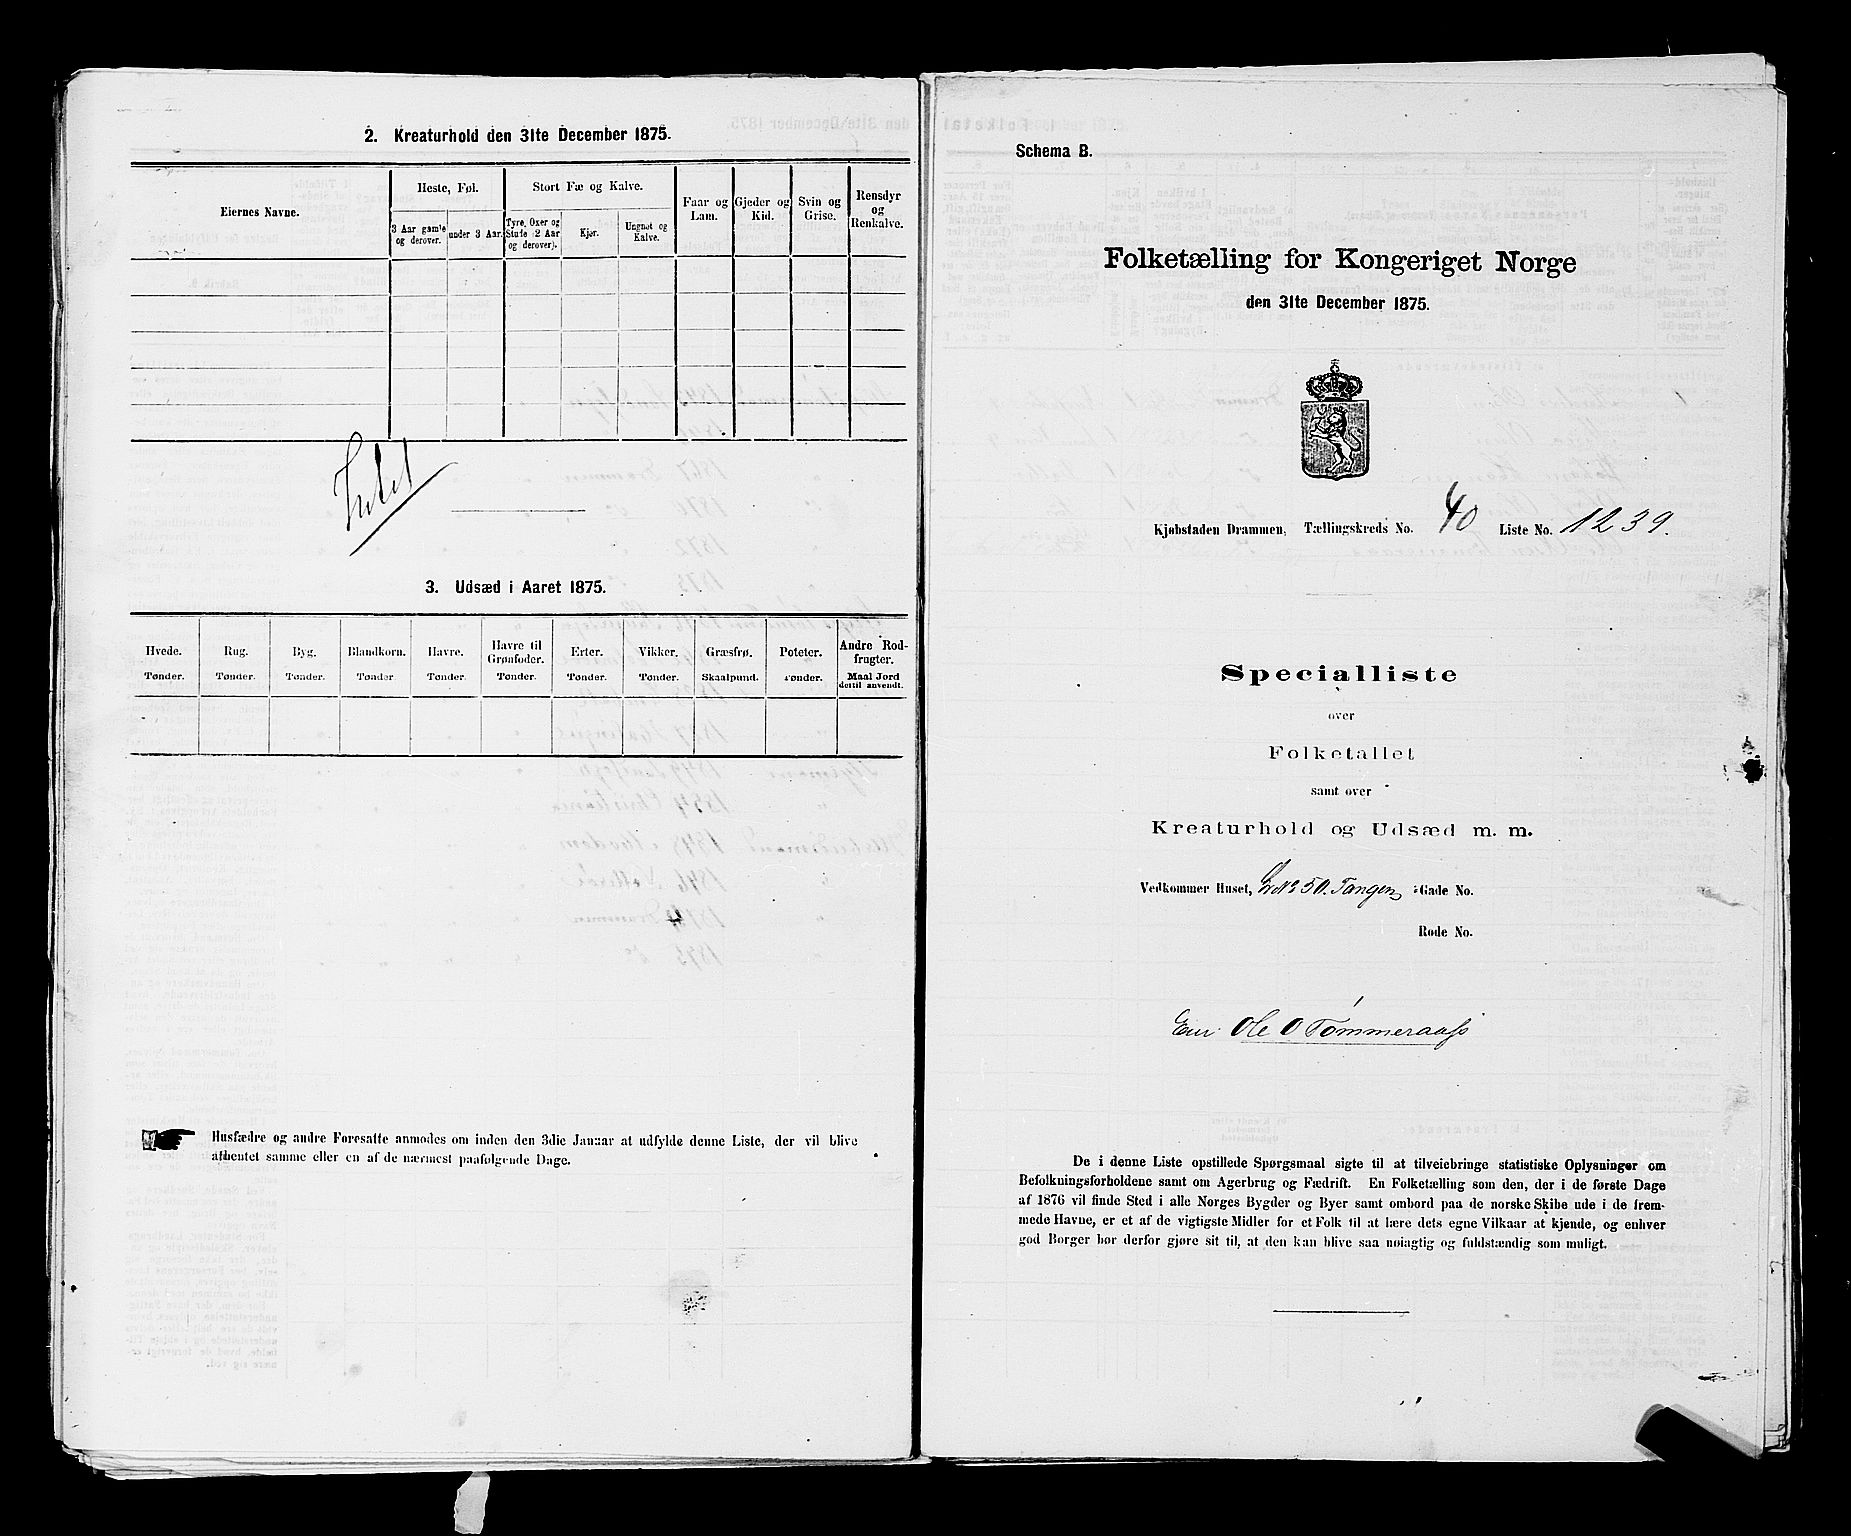 2. Kreaturhold den 31te December 1875.
Eiernes Navne.
Heste, Føl.
Stort Fæ og Kalve.
Faar og Lam.
Gjeder og Kid.
Svin og Grise.
Rensdyr og Renkalve.
3 Aar gamle og derover.
under 3 Aar.
Tyre, Oxer og Stude (2 Aar og derover).
Kjør.
Ungnøt og Kalve.
Intet
3. Udsæd i Aaret 1875.
Hvede. Rug. Byg. Blandkorn. Havre. Havre til Grønfoder. Erter. Vikker. Græsfrø. Poteter. Andre Rodfrugter.
Tønder. Tønder. Tønder. Tønder Tønder. Tønder. Tønder. Tønder. Skaalpund. Tønder. Maal Jord dertil anvendt.
Husfædre og andre Foresatte anmodes om inden den 3die Januar at udfylde denne Liste, der vil blive
afhentet samme eller en af de nærmest paafølgende Dage.
Schema B.
Folketælling for Kongeriget Norge
den 31te December 1875.
Kjøbstaden Drammen, Tællingskreds No. 40 Liste No. 1239.
Specialliste
over
Folketallet
samt over
Kreaturhold og Udsæd m. m.
Vedkommer Huset, No 50. Tangen Gade No.
Rode No.
Eier Ole O Tømmeraass
De i denne Liste opstillede Spørgsmaal sigte til at tilveiebringe statistiske Oplysninger om
Befolkningsforholdene samt om Agerbrug og Fædrift. En Folketælling som den, der i de første Dage
af 1876 vil finde Sted i alle Norges Bygder og Byer samt ombord paa de norske Skibe ude i de frem-
mede Havne, er et af de vigtigste Midler for et Folk til at lære dets egne Vilkaar at kjende, og enhver
god Borger bør derfor gjøre sit til, at den kan blive saa nøiagtig og fuldstændig som muligt.